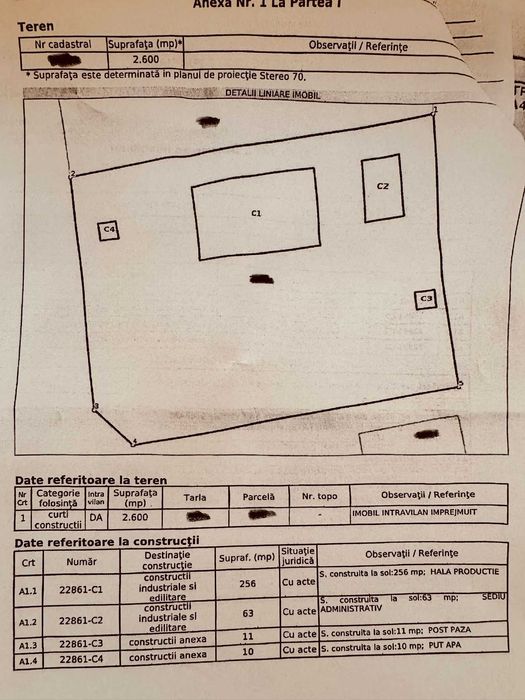 Anexa Nr. 1 La Partea I
Teren
Nr cadastral Suprafața (mp)* Observații / Referințe
2.600
* Suprafața este determinată in planul de proiecție Stereo 70.
DETALII LINIARE IMOBIL
1
2
C2
C1
C4
C3
3
4
5
Date referitoare la teren
Nr Crt Categorie folosință Intra vilan Suprafața (mp) Tarla Parcelă Nr. topo Observații / Referințe
1 curti constructii DA 2.600 - IMOBIL INTRAVILAN IMPREJMUIT
Date referitoare la construcții
Crt Număr Destinație construcție Supraf. (mp) Situație juridică Observații / Referințe
A1.1 22861-C1 constructii industriale si edilitare 256 Cu acte S. construita la sol:256 mp; HALA PRODUCTIE
A1.2 22861-C2 constructii industriale si edilitare 63 Cu acte S. construita la sol:63 mp; SEDIU ADMINISTRATIV
A1.3 22861-C3 constructii anexa 11 Cu acte S. construita la sol:11 mp; POST PAZA
A1.4 22861-C4 constructii anexa 10 Cu acte S. construita la sol:10 mp; PUT APA